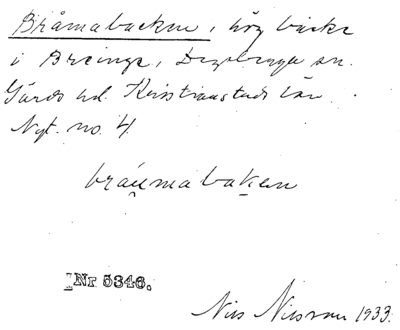 Bråmabacken, hög backe
i Bringe, Degeberga sn.
Gärds hd. Kristianstads län.
Nyt. no. 4
bráu̯mabaken
Nr 5346.
Nils Nilsson 1933.